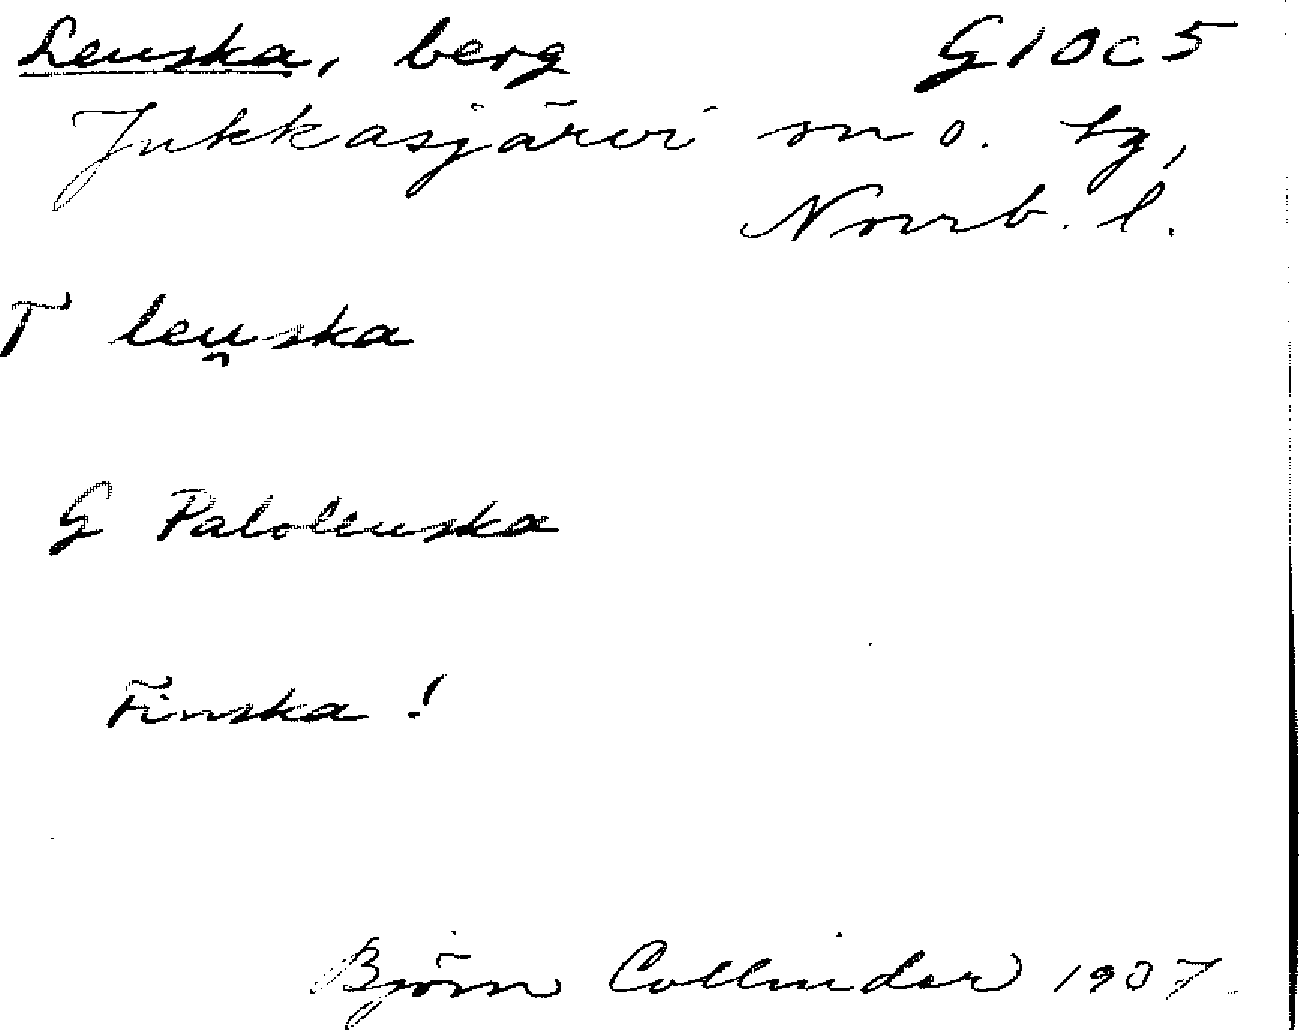 Leuska, berg G10c5
Jukkasjärvi sn o. tg,
Norrb. l.
T leu̯ska
G Paloleuska
Finska!
Björn Collinder 1937